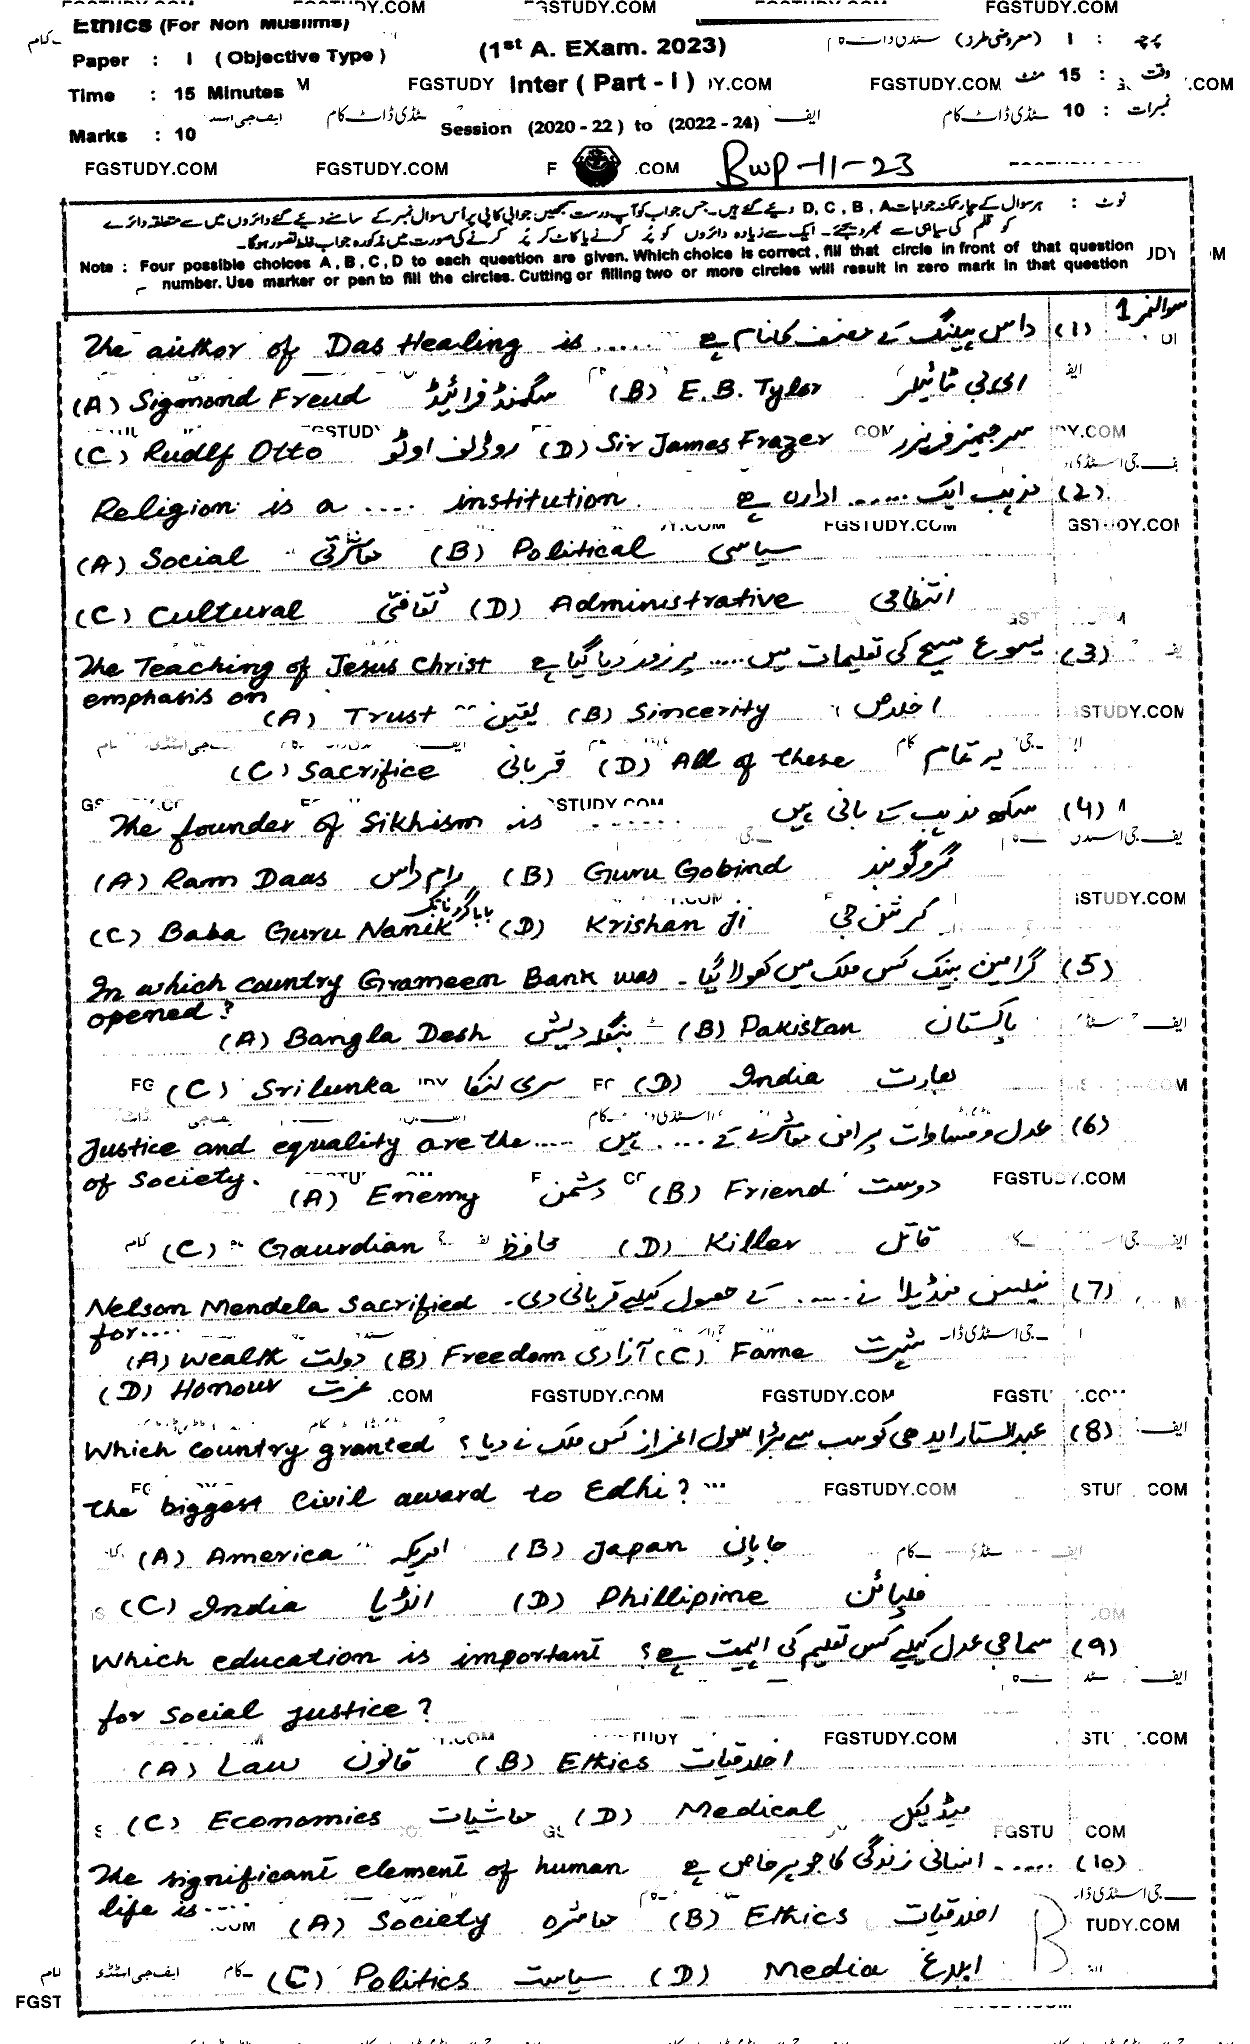 FGSTUDY.COM FGSTUDY.COM
Ethics (For Non Muslims)
(1st A. EXam. 2023)
پرچہ : I (معروضی طرز)
Paper : I (Objective Type)
FGSTUDY Inter (Part - I) FGSTUDY.COM
وقت : 15 منٹ
Time : 15 Minutes
نمبرات : 10
Session (2020 - 22) to (2022 - 24)
Marks : 10
FGSTUDY.COM FGSTUDY.COM F .COM Bwp-11-23
نوٹ : ہر سوال کے چار ممکنہ جوابات D, C, B, A دیئے گئے ہیں۔ جس جواب کو آپ درست سمجھیں جوابی کاپی پر اُس سوال نمبر کے سامنے دیئے گئے دائروں میں سے متعلقہ دائرے
کو قلم کی سیاہی سے بھر دیجئے۔ ایک سے زیادہ دائروں کو پُر کرنے یا کاٹ کر پُر کرنے کی صورت میں مذکورہ جواب غلط تصور ہوگا۔
Note : Four possible choices A , B , C , D to each question are given. Which choice is correct , fill that circle in front of that question
number. Use marker or pen to fill the circles. Cutting or filling two or more circles will result in zero mark in that question
سوال نمبر 1
The author of Das Healing is ..... داس ہیلنگ کے مصنف کا نام ہے (1)
(A) Sigmond Freud سگمنڈ فرائیڈ (B) E.B. Tylor ای بی ٹائیلر
(C) Rudlf Otto روڈلف اوٹو (D) Sir James Frazer سر جیمز فریزر
Religion is a .... institution. مذہب ایک ...... ادارہ ہے (2)
(A) Social معاشرتی (B) Political سیاسی
(C) Cultural ثقافتی (D) Administrative انتظامی
The Teaching of Jesus Christ یسوع مسیح کی تعلیمات میں ..... پر زور دیا گیا ہے (3)
emphasis on
(A) Trust یقین (B) Sincerity اخلاص
(C) Sacrifice قربانی (D) All of these یہ تمام
The founder of Sikhism is ...... سکھ مذہب کے بانی ہیں (4)
(A) Ram Daas رام داس (B) Guru Gobind گرو گوبند
(C) Baba Guru Nanik بابا گرو نانک (D) Krishan Ji کرشن جی
In which country Grameen Bank was گرامین بینک کس ملک میں کھولا گیا۔ (5)
opened?
(A) Bangla Desh بنگلہ دیش (B) Pakistan پاکستان
(C) Srilunka سری لنکا (D) India بھارت
Justice and equality are the ..... عدل و مساوات پرامن معاشرے کے .... ہیں (6)
of Society.
(A) Enemy دشمن (B) Friend دوست
(C) Gaurdian محافظ (D) Killer قاتل
Nelson Mendela Sacrified نیلسن منڈیلا نے ..... کے حصول کیلئے قربانی دی۔ (7)
for....
(A) Wealth دولت (B) Freedom آزادی (C) Fame شہرت
(D) Honour عزت .COM FGSTUDY.COM FGSTUDY.COM
Which country granted عبدالستار ایدھی کو سب سے بڑا سول اعزاز کس ملک نے دیا؟ (8)
the biggest Civil award to Edhi? FGSTUDY.COM
(A) America امریکہ (B) Japan جاپان
(C) India انڈیا (D) Phillipine فلپائن
Which education is important سماجی عدل کیلئے کس تعلیم کی اہمیت ہے؟ (9)
for social justice?
FGSTUDY.COM
(A) Law قانون (B) Ethics اخلاقیات
(C) Economics معاشیات (D) Medical میڈیکل
The significant element of human ...... انسانی زندگی کا جوہر خاص ہے (10)
life is ....
(A) Society معاشرہ (B) Ethics اخلاقیات
(C) Politics سیاست (D) Media ابلاغ
B